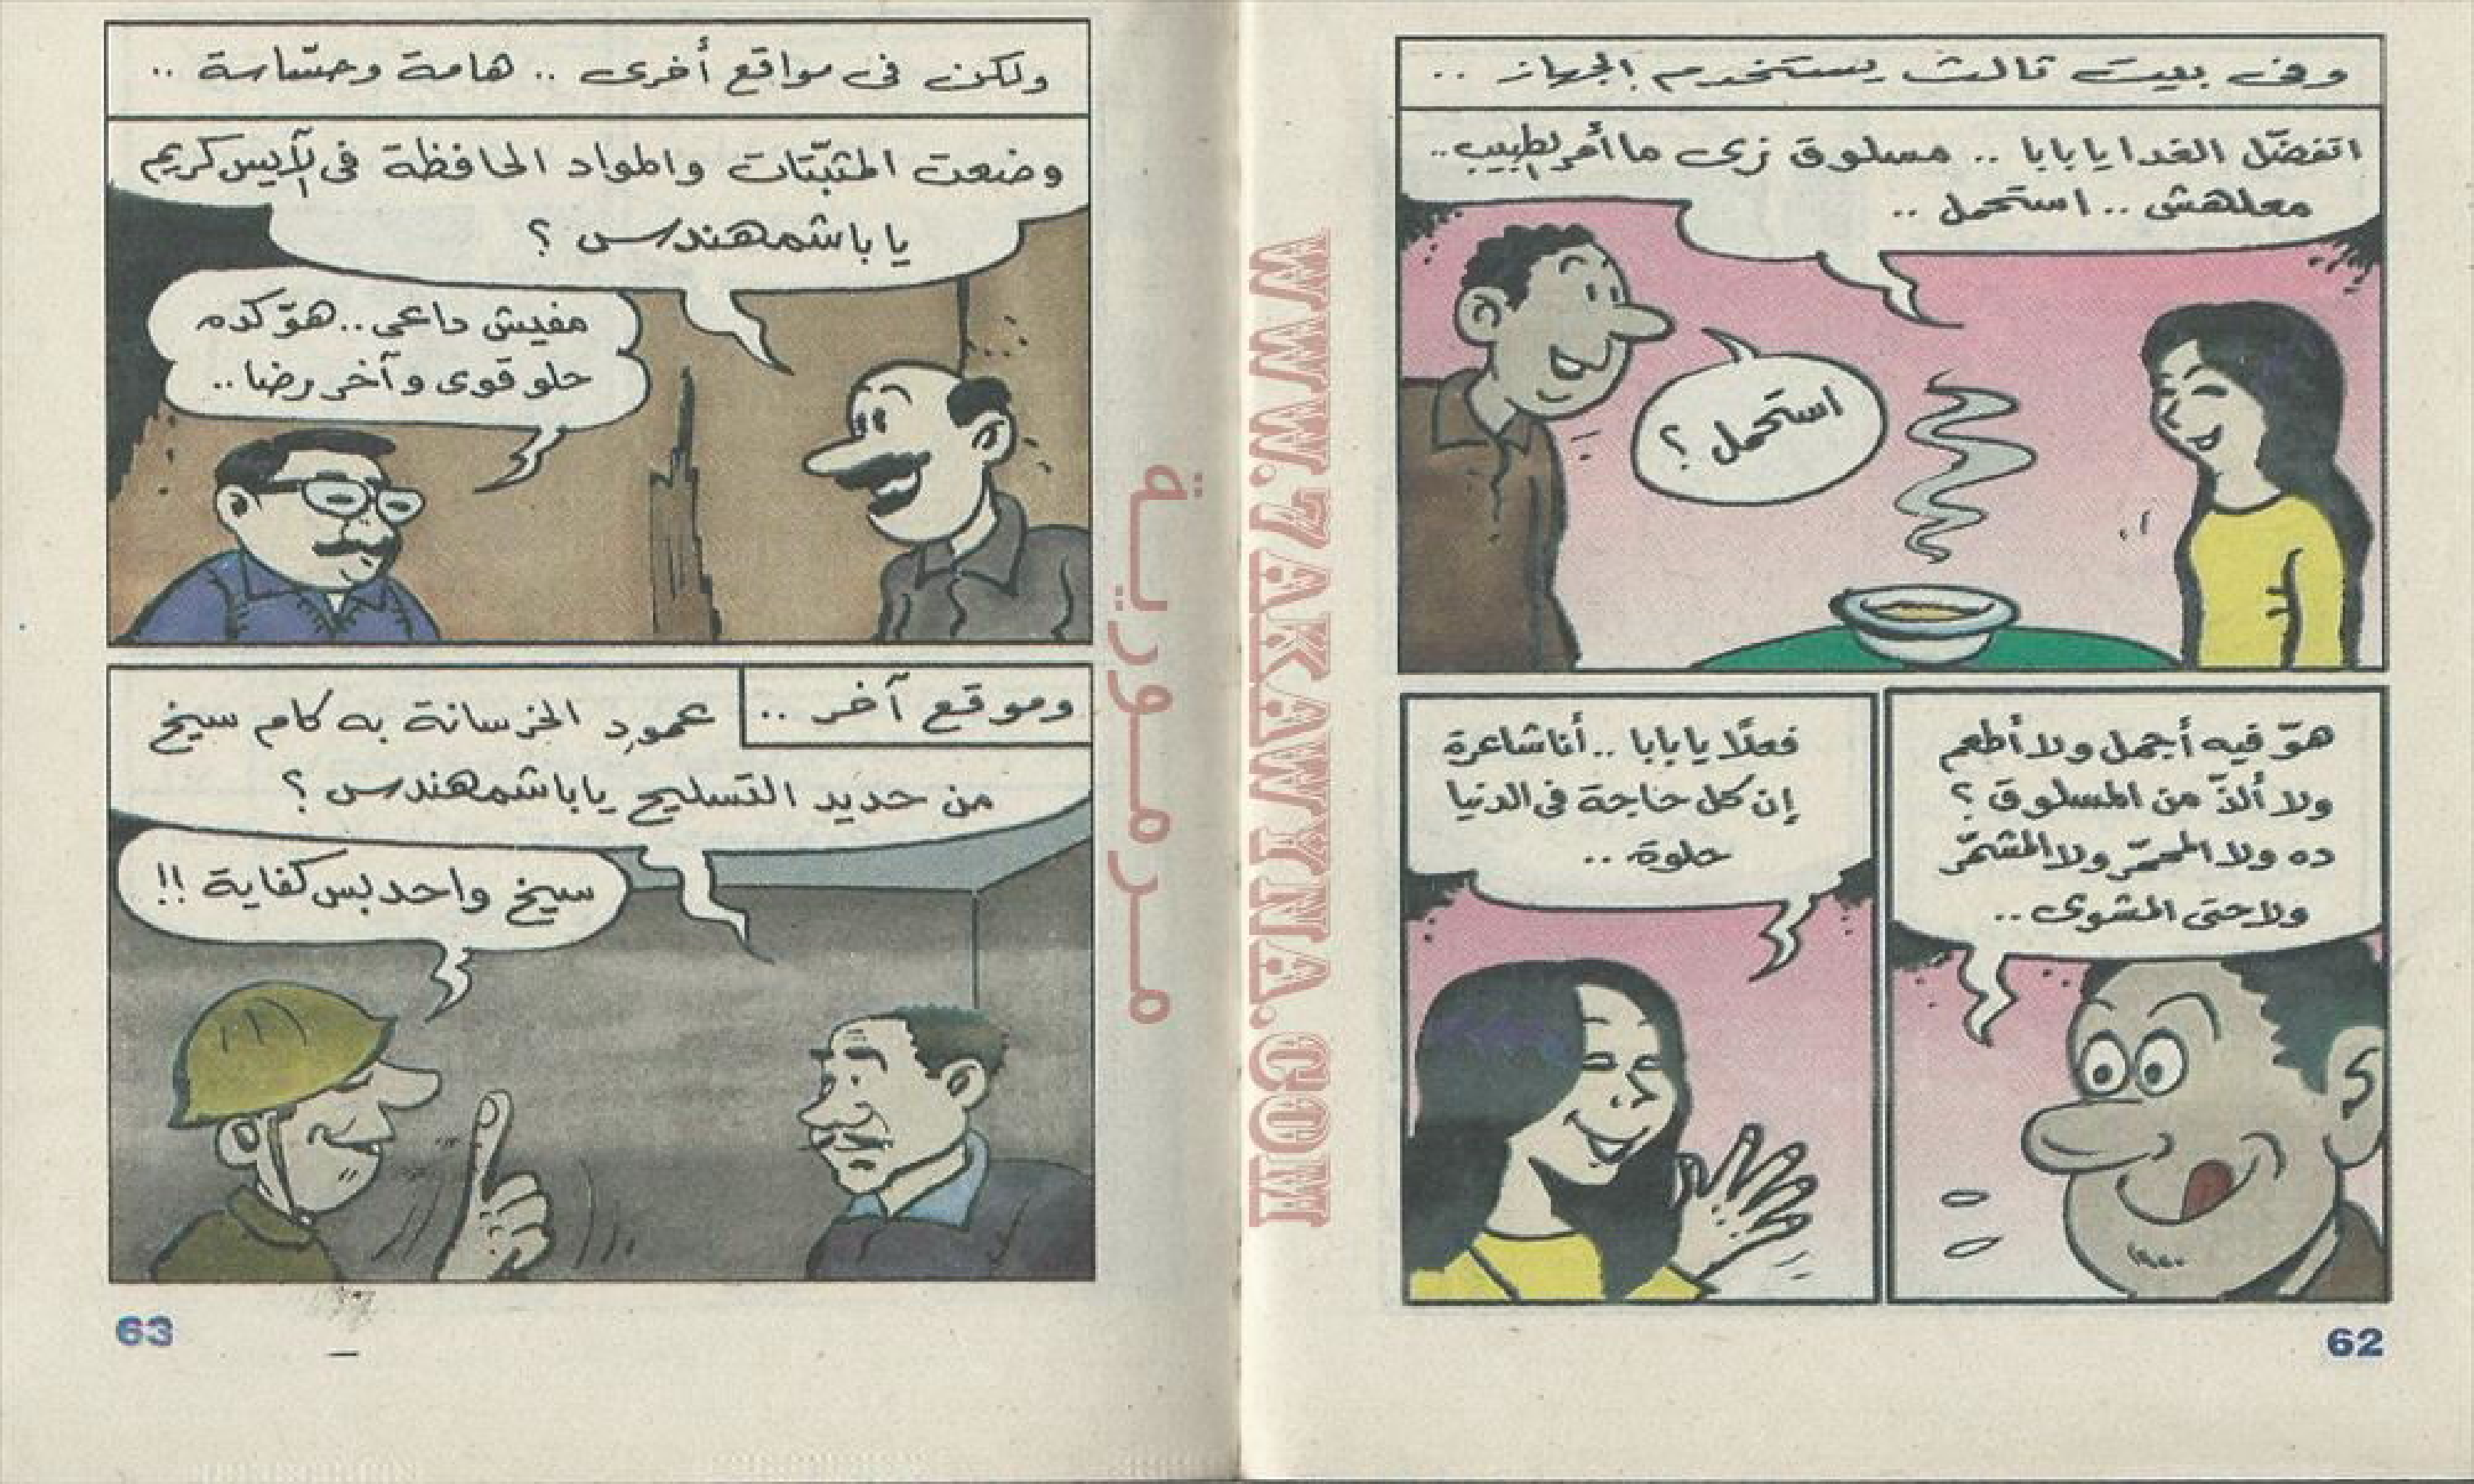 وفى بيت ثالث يستخدم الجهاز ..
اتفضّل الغدا يا بابا .. مسلوق زى ما أمر الطبيب ..
معلهش .. استحمل ..
استحمل ؟
هوّ فيه أجمل ولا أطعم
ولا ألذّ من المسلوق ؟
ده ولا المحمّر ولا المشمّر
ولا حتى المشوى ..
فعلًا يا بابا .. أنا شاعرة
إن كل حاجة فى الدنيا
حلوة ..
62
WWW.7AKAWYNA.COM
مرمورية
ولكن فى مواقع أخرى .. هامة وحسّاسة ..
وضعت المثبّتات والمواد الحافظة فى الآيس كريم
يا باشمهندس ؟
مفيش داعى .. هوّ كده
حلو قوى وآخر رضا ..
وموقع آخر ..
عمود الخرسانة به كام سيخ
من حديد التسليح يا باشمهندس ؟
سيخ واحد بس كفاية !!
63